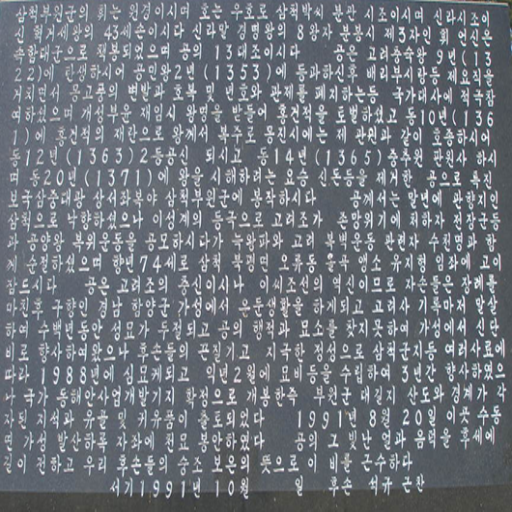 삼척부원군의 휘는 원경이시며 호는 우호로 삼척박씨 분관 시조이시며 신라시조이
신 혁거세왕의 43세손이시다 신라말 경명왕의 8왕자 분봉시 제3자인 휘 언신은
속함대군으로 책봉되었으며 공의 13대조이시다 공은 고려충숙왕 9년(13
22)에 탄생하시어 공민왕2년(1353)에 등과하신후 배리부사랑등 제요직을
거치면서 몽고풍의 변발과 호복 및 년호와 관제를 폐지하는등 국가대사에 적극참
여하셨으며 개성부윤 재임시 왕명을 받들어 홍건적을 토벌하셨고 동10년(136
1)에 홍건적의 재란으로 왕께서 복주로 몽진시에는 제 관원과 같이 호종하시어
동12년(1363)2등공신 되시고 동14년(1365)충주원 판원사 하시
며 동20년(1371)에 왕을 시해하려는 요승 신돈등을 제거한 공으로 특진
보국삼중대광 상서좌복야 삼척부원군에 봉작하시다 공께서는 말년에 관향지인
삼척으로 낙향하셨으나 이성계의 등극으로 고려조가 존망위기에 처하자 전장군등
과 공양왕 복위운동을 공모하시다가 왕파와 고려 복벽운동 관련자 수천명과 함
께 순절하셨으며 향년74세로 삼척 부평면 오류동 율곡 앵소 유지형 임좌에 고이
잠드시다 공은 고려조의 충신이시나 이씨조선의 혁신이므로 자손들은 장례를
마친후 구향인 경남 함양군 가성에서 은둔생활을 하게되고 고려사 기록마저 말살
하여 수백년동안 성묘가 두절되고 공의 행적과 묘소를 찾지못하여 가성에서 신단
비로 향사하여왔으나 후손들의 끈질기고 지극한 정성으로 삼척군지등 여러사료에
따라 1988년에 심묘케되고 익년2월에 묘비등을 수립하여 3년간 향사하였으
나 국가 동해안사업개발기지 확정으로 개봉한즉 부원군 대길지 산도와 경계가 각
자된 지석과 유골 및 귀유품이 출토되었다 1991년 8월 20일 이곳 수동
면 가성 발산하록 자좌에 천묘 봉안하였다 공의 그 빛난 얼과 음덕을 후세에
길이 전하고 우리 후손들의 숭조 보은의 뜻으로 이 비를 근수하다
서기1991년 10월 일 후손 석규 근찬